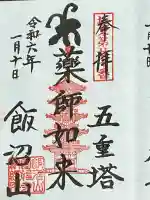 奉拝
五重塔
薬師如来
飯沼山
令和六年
一月十日